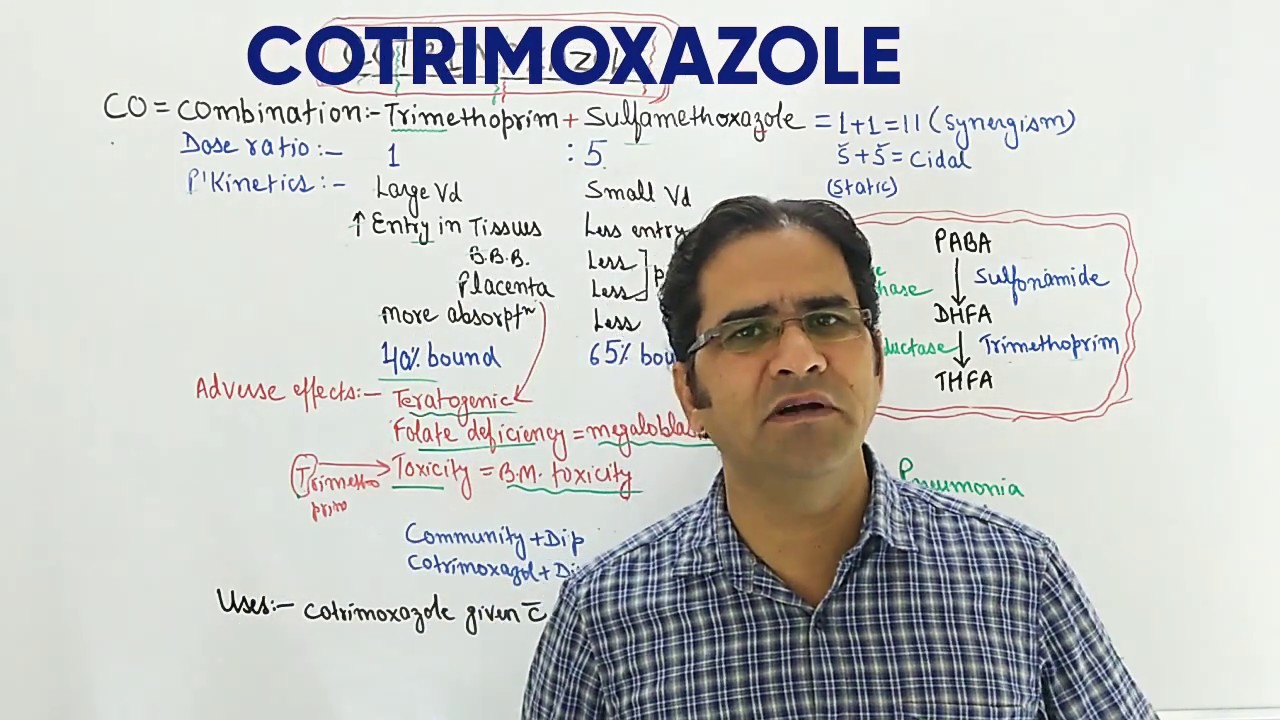 COTRIMOXAZOLE
CO = Combination:- Trimethoprim + Sulfamethoxazole = 1+1=11 (Synergism)
Dose ratio :- 1 : 5
S̆ + S̆ = Cidal
(Static)
P'Kinetics :- Large Vd Small Vd
↑ Entry in Tissues Less entry
B.B.B. Less
Placenta Less
more absorptⁿ Less
40% bound 65%
PABA
↓ Sulfonamide
DHFA
↓ Trimethoprim
THFA
Adverse effects:- Teratogenic
Folate deficiency =
Trimethoprim → Toxicity = B.M. toxicity
Pneumonia
Community +
Cotrimoxazol +
Uses:- Cotrimoxazole given c̄